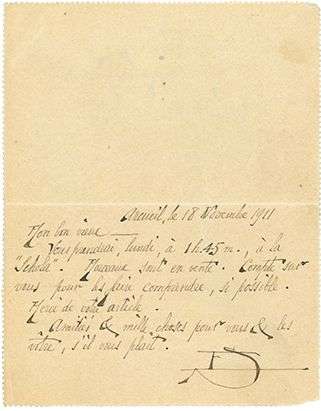 Arcueil, le 18 Novembre 1911
Mon bon vieux —
Vous prendrai, lundi, à 1h.45m., à la
"Schola". Morceaux sont en vente. Compte sur
vous pour les faire comprendre, si possible.
Merci de votre article.
Amitiés & mille choses pour vous & les
vôtre, s'il vous plaît.
ES